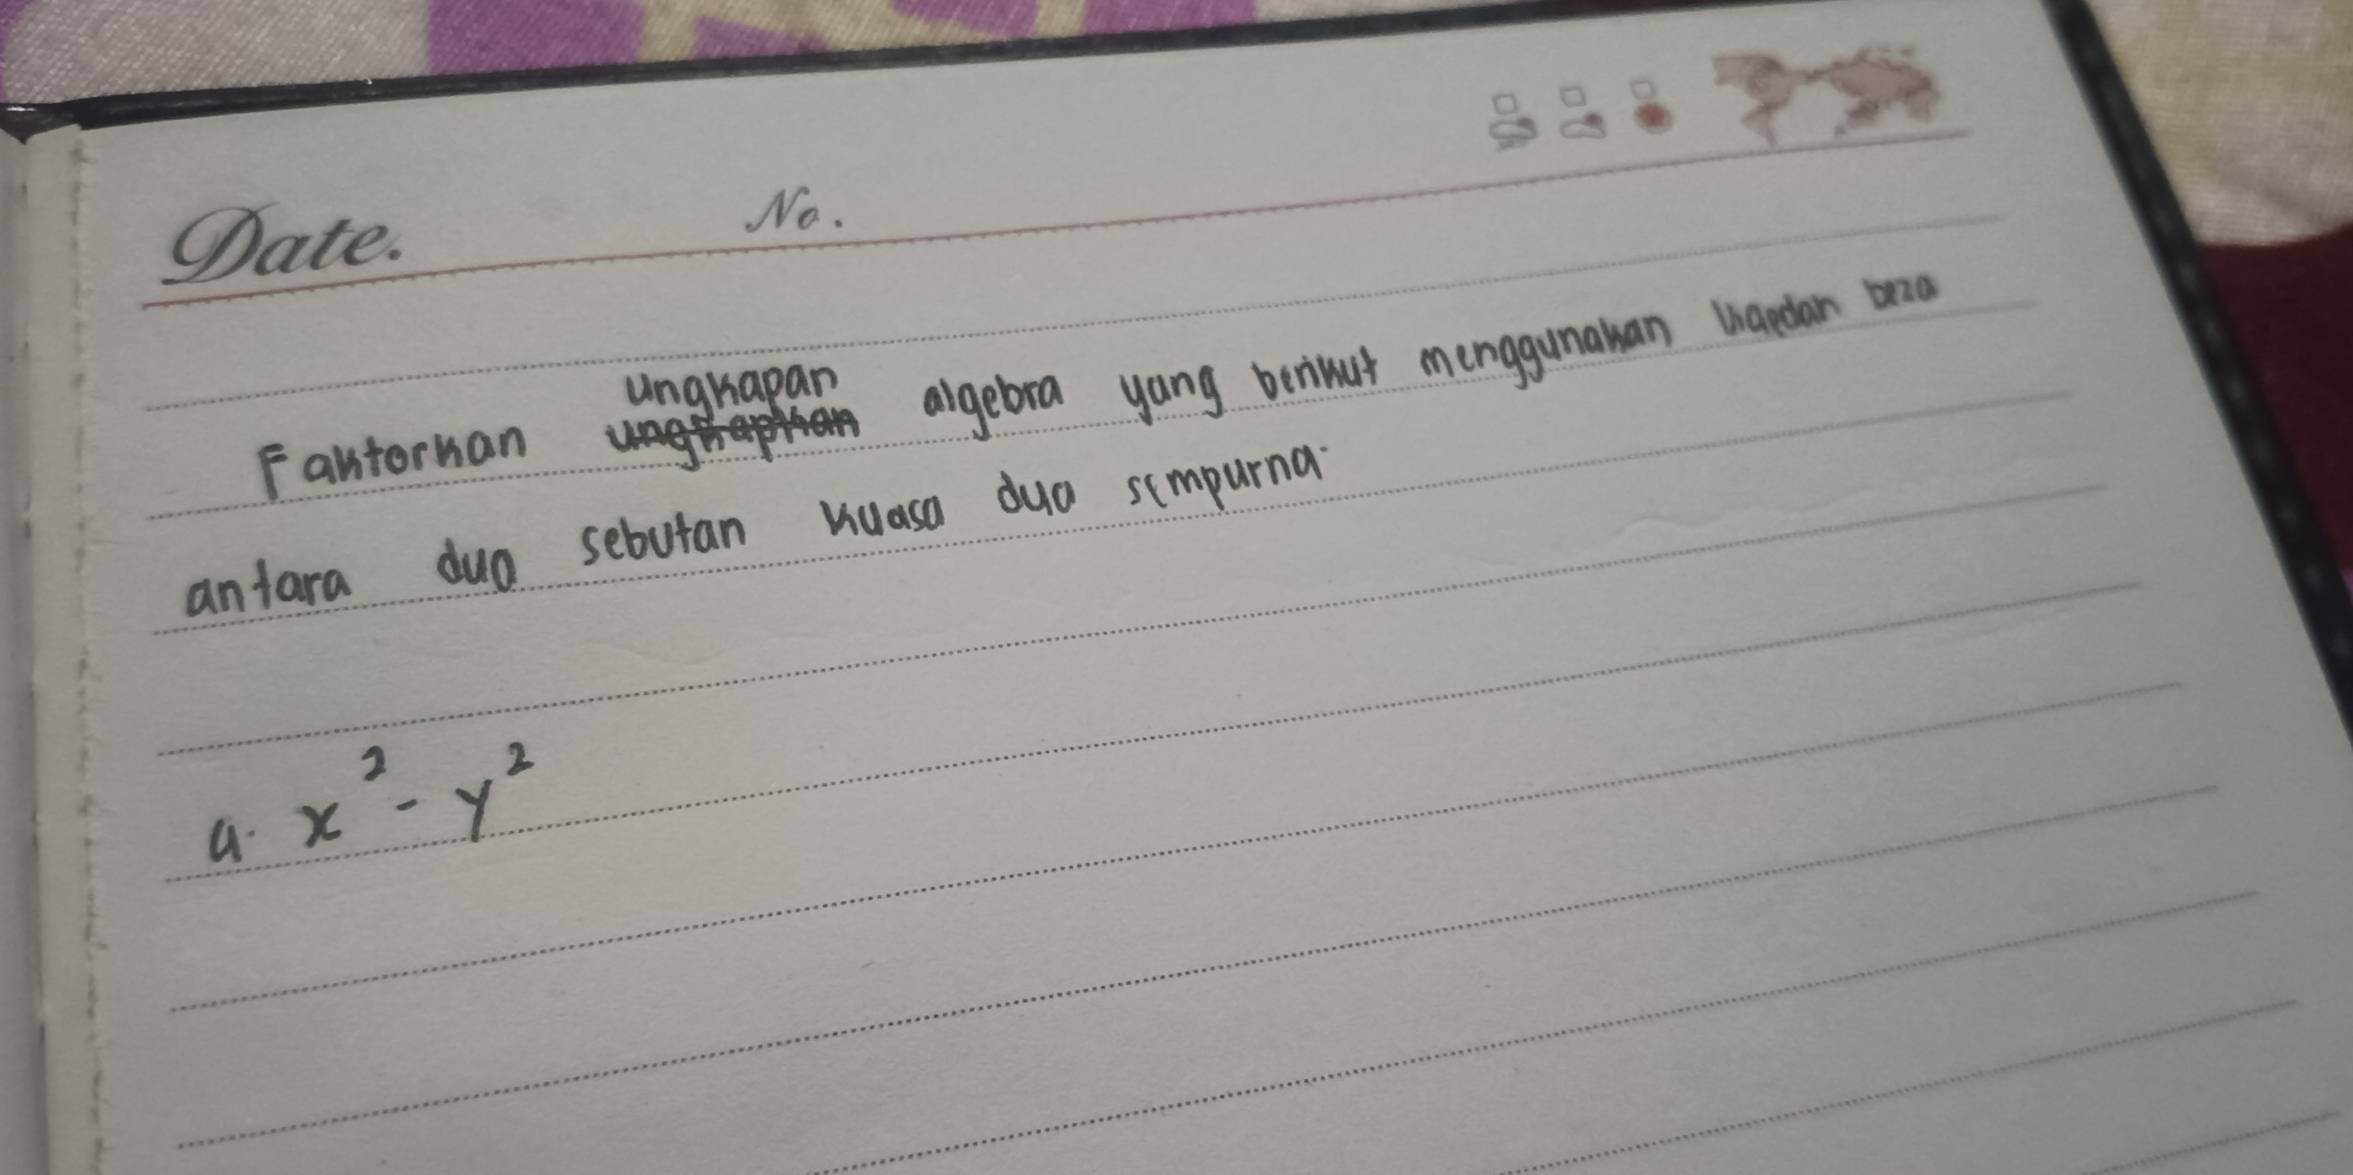 Date. No.
Faktorkan ungkapan algebra yang berikut menggunakan kaedah beza
antara dua sebutan kuasa dua sempurna.
a. x² - y²